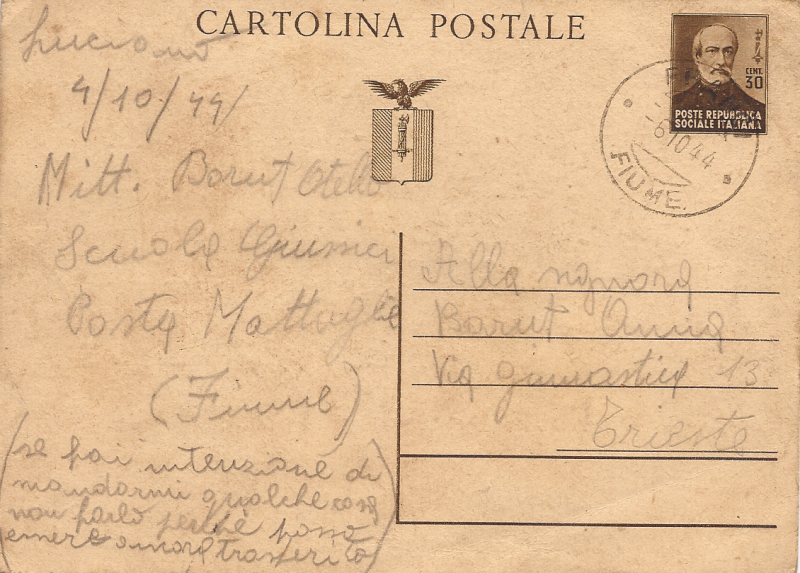 CARTOLINA POSTALE
4/10/44
CENT.
30
POSTE REPUBBLICA
SOCIALE ITALIANA
-6.10.44
FIUME.
Mitt. Borut Otello
Scuola
Posta Mattuglie
(Fiume)
(se hai intenzione di
mandarmi qualche cosa
non farlo perchè posso
essere ancora trasferito)
Alla signora
Borut Anna
Via Ginnastica 13
Trieste